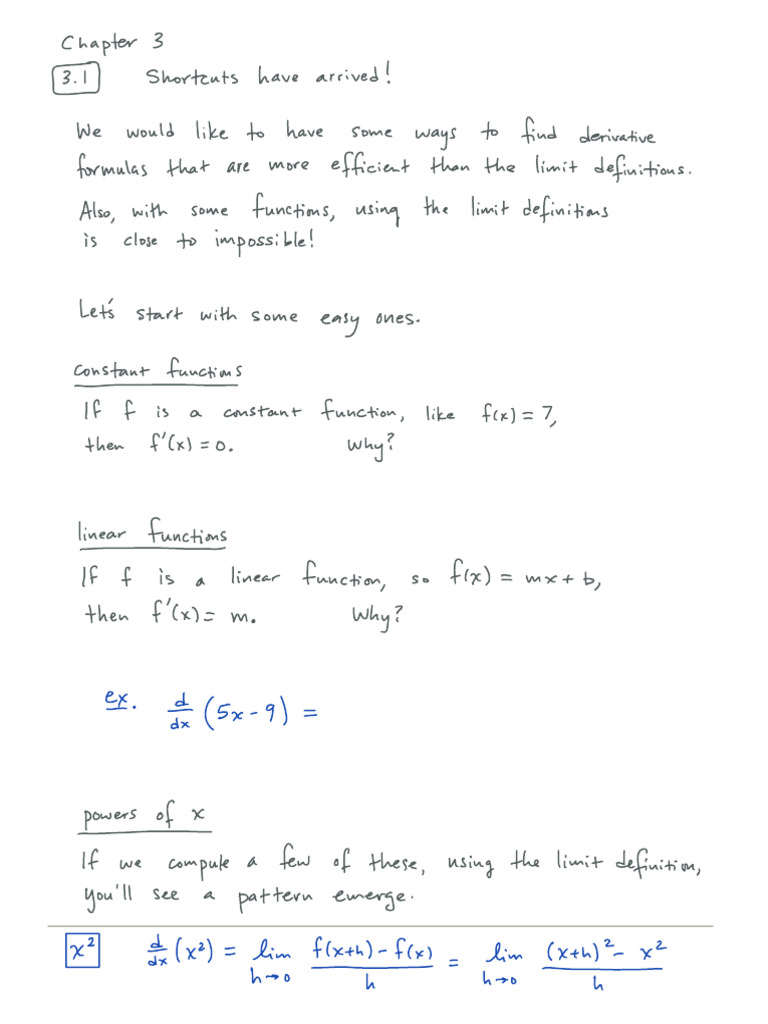 Chapter 3
3.1 Shortcuts have arrived!
We would like to have some ways to find derivative
formulas that are more efficient than the limit definitions.
Also, with some functions, using the limit definitions
is close to impossible!
Let's start with some easy ones.
constant functions
If f is a constant function, like f(x) = 7,
then f'(x) = 0. Why?
linear functions
If f is a linear function, so f(x) = mx + b,
then f'(x) = m. Why?
ex. d/dx (5x - 9) =
powers of x
If we compute a few of these, using the limit definition,
you'll see a pattern emerge.
x² d/dx (x²) = lim h→0 (f(x+h) - f(x))/h = lim h→0 ((x+h)² - x²)/h